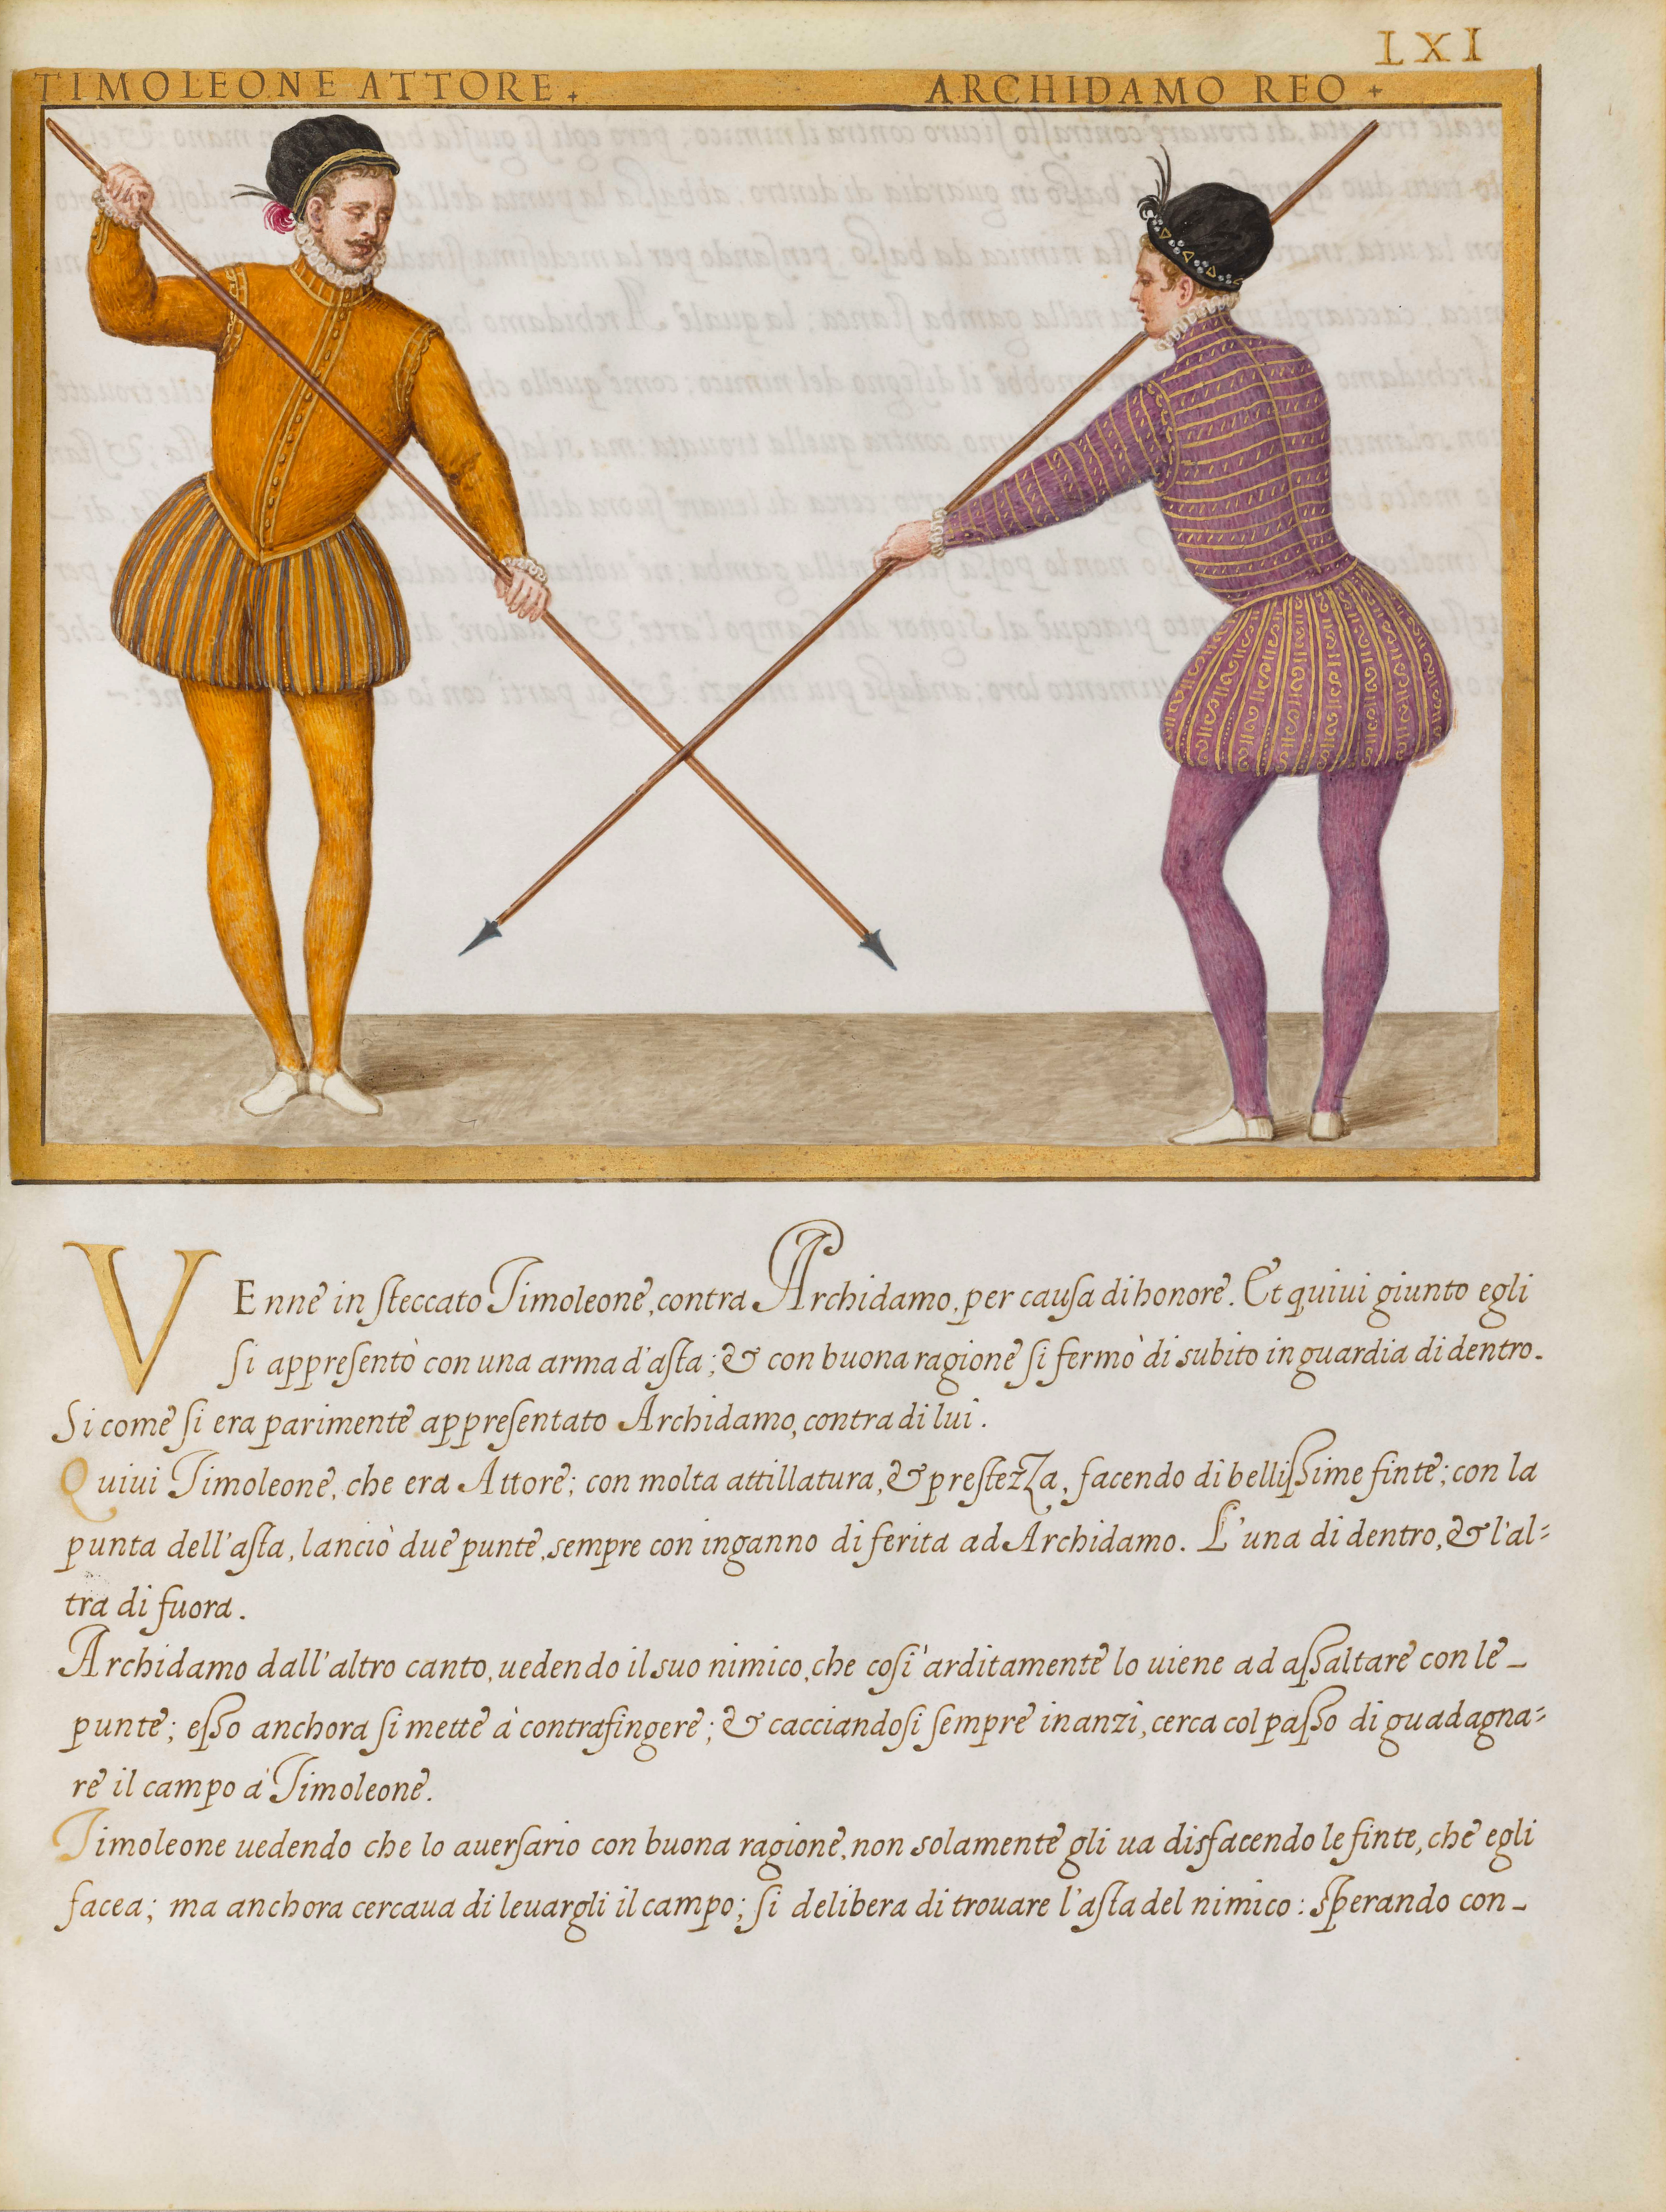 LXI
TIMOLEONE ATTORE +
ARCHIDAMO REO +
VEnne in ſteccato Timoleone, contra Archidamo, per cauſa di honore. Et quiui giunto egli
ſi appreſentò con una arma d'aſta; & con buona ragione ſi fermò di subito in guardia di dentro.
Si come ſi era parimente appreſentato Archidamo, contra di lui.
Quiui Timoleone, che era Attore; con molta attillatura, & preſtezza, facendo di belliſsime finte; con la
punta dell'aſta, lanciò due punte, sempre con inganno di ferita ad Archidamo. L'una di dentro, & l'al=
tra di fuora.
Archidamo dall'altro canto, uedendo il suo nimico, che coſi arditamente lo uiene ad aſsaltare con le
punte; eſso anchora ſi mette à contrafingere; & cacciandoſi ſempre inanzi, cerca col paſso di guadagna=
re il campo à Timoleone.
Timoleone uedendo che lo auerſario con buona ragione, non solamente gli ua disfacendo le finte, che egli
facea; ma anchora cercaua di leuargli il campo; ſi delibera di trouare l'aſta del nimico: sperando con_